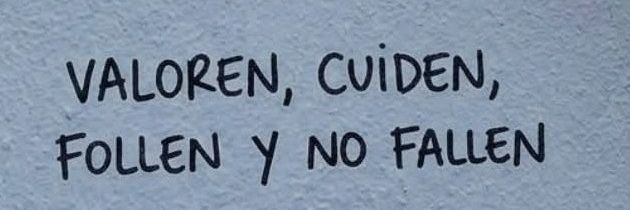 VALOREN, CUiDEN,
FOLLEN Y NO FALLEN